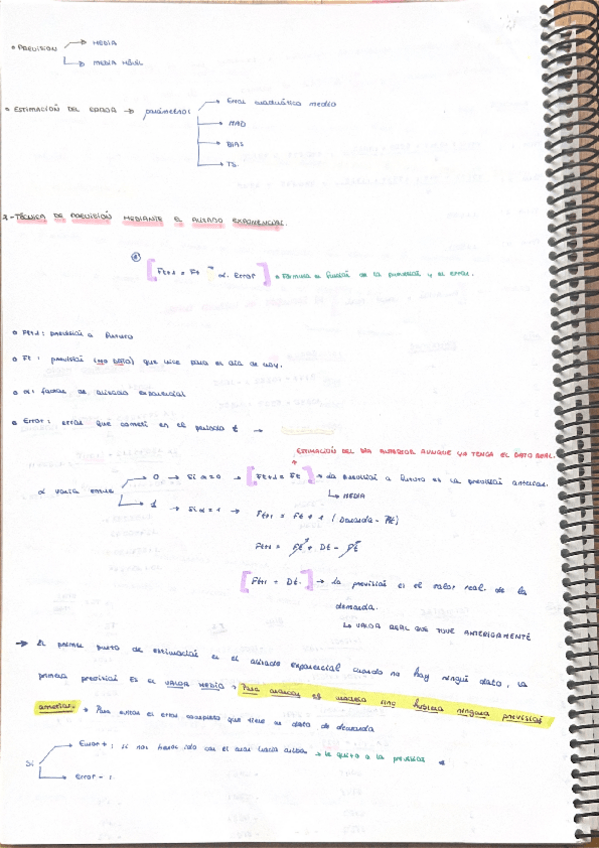 • PREVISION → MEDIA
→ MEDIA MÓVIL
• ESTIMACIÓN DEL ERROR → parámetros → Error cuadrático medio
→ MAD
→ BIAS
→ TS
2- TÉCNICA DE PREVISIÓN MEDIANTE EL ALISADO EXPONENCIAL.
[Ft+1 = Ft - α. Error] → Fórmula en función de la previsión y el error.
• Ft+1: previsión a futuro
• Ft: previsión (no dato) que hice para el día de hoy.
• α: factor de alisado exponencial
• Error: error que cometí en el periodo t →
ESTIMACIÓN DEL DÍA ANTERIOR AUNQUE YA TENGA EL DATO REAL.
α varía entre → 0 → Si α = 0 → [Ft+1 = Ft] → La previsión a futuro es la previsión anterior.
↳ MEDIA
→ 1 → Si α = 1 → Ft+1 = Ft + 1 (Demanda - Ft)
Ft+1 = Ft + Dt - Ft
[Ft+1 = Dt.] → la previsión es el valor real de la
demanda.
LA VALOR REAL QUE TUVE ANTERIORMENTE
→ El primer punto de estimación en el alisado exponencial cuando no hay ningún dato, la
primera previsión es el VALOR MEDIO → Para arrancar el modelo sino hubiera ninguna previsión
anterior. → Para evitar el error que tiene un dato de demanda
Si → Error + : si nos hemos ido con el error hacia arriba → le quito a la previsión
→ Error - :